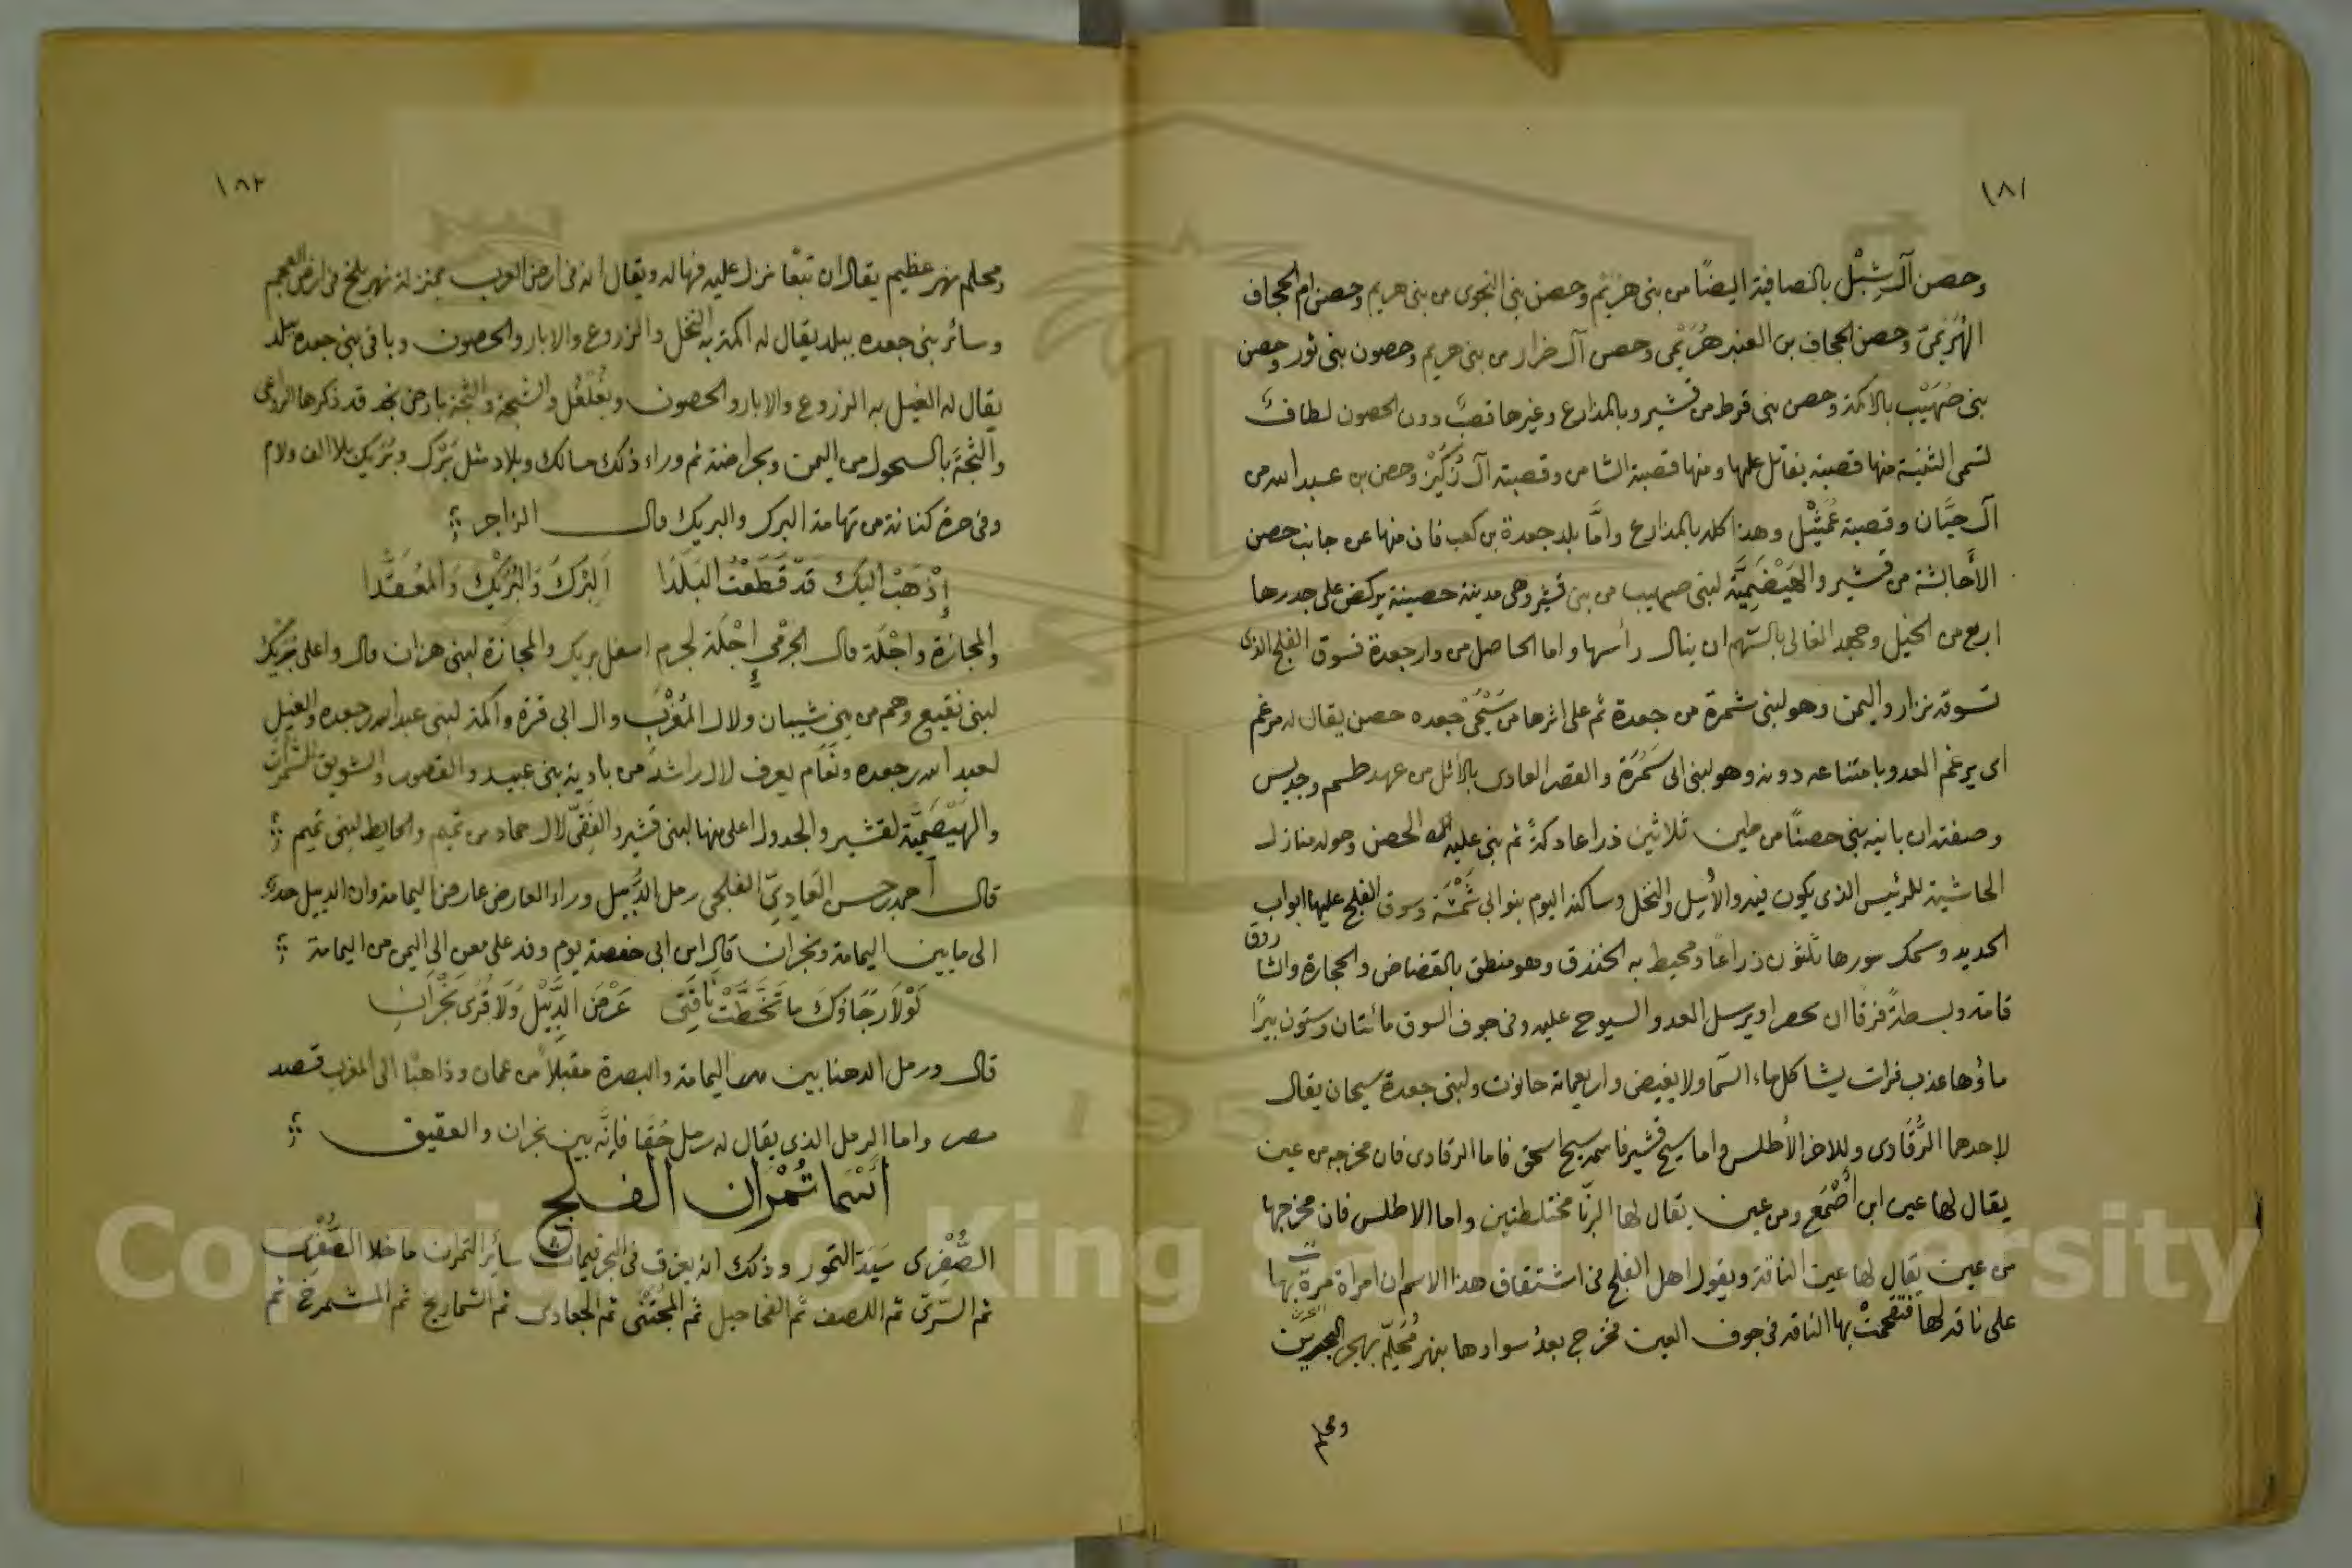 ١٨١
وحصن آل شِبْل بالصافية ايضًا من بنى هريم وحصن بنى النجوى من بنى هريم وحصن ام الحجاف
الهُرَيمىّ وحصن الجحاف بن العنبر هُرَيمْى وحصن آل ضرار من بنى هريم وحصون بنى ثور وحصن
بنى صُهَيْب بالاكمة وحصن بنى قرط من قشير وبالمذارع وغيرها قصبٌ دون الحصون لطاف
تسمى الثنية منها قصبة يقاتل عليها ومنها قصبة الشاس وقصبة آل رُكَيْز وحصن بن عبد الله من
آل حيَّان وقصبة عُمَيْثْل وهذا كله بالمذارع وامَّا بلد جعدة بن كعب فان منها عن جانب حصن
الأحابشة من قشير والهَيْضَمِيَّة لبنى صهيب من بنى قشير وهى مدينة حصينة يركض على جدرها
اربع من الخيل وجهد الغالى بالسّهم ان ينال رأسها واما الحاصل من دار جعدة فسوق الفلج الذى
تسوقه نزار واليمن وهو لبنى شمرة من جعدة ثم على اثرها من جعده حصن يقال له مرغم
اى يرغم العدو بامتناعه دونه وهو لبنى ابى سَمُرَة والقصر العادى بالأثل من عهد طسم وجديس
وصفته ان بانيه بنى حصنًا من طين ثلاثين ذراعا دكةً ثم بنى عليه الحصن وحوله منازل
الحاشية للرئيس الذى يكون فيه والأثل والنخل وساكنه اليوم بنو ابى وسوق الفلج عليها ابواب
الحديد وسمك سورها ثلثون ذراعًا ومحيط به الخندق وهو منطق بالقضاض والحجارة والشاروق
قامة وبسطةً فرقا ان يحصر او يرسل العدو السيوح عليه وفى جوف السوق مائتان وستون بيرًا
ماؤها عذب فرات يشاكل ماء السّما ولا يغيض واربعماية حانوت ولبنى جعدة سيحان يقال
لاحدهما الرُّقَادى وللاخر الأطلس واما سيح قشير فاسمه سيح اسحق فاما الرقادى فان مخرجه من عين
يقال لها عين ابن أَصْمَع ومن عين يقال لها الزبّا مختلطتين واما الاطلس فان مخرجها
من عين يقال لها عين الناقة ويقول اهل الفلج فى اشتقاق هذا الاسم ان امراة مرت بها
على ناقة لها فتقحمت بها الناقة فى جوف العين فخرج بعدُ سوارها بنهر مُحَلِّم بهجر البحرين
ومحلم
١٨٢
ومحلم نهر عظيم يقال ان تبّعًا نزل عليه فهاله ويقال انه فى ارض العرب بمنزلة نهر بلخ فى ارض العجم
وسائر بنى جعده ببلد يقال له اكمة به النخل والزروع والابار والحصون وباقى بنى جعده ببلد
يقال له الغيل به الزروع والابار والحصون والشجة والثجة بارض نجد قد ذكرها الراعى
والثجّة بالسحول من اليمن ثم وراء ذلك مسالك وبلاد مثل بَرْك وبُرَيك بلا الف ولام
وفى حرة كنانة من تهامة البرك والبريك قال الراجز
إِذْهَبْ اليك قَدْ قَطَعْتُ البَلَدَا اَلبْرَكَ وَالبُرَيْكَ وَالمُعَقَّدَا
والمجازة واجْلَة قال الجرْمي إِجْلَة لجرم اسفل بريك والمجازة لبنى هزان قال واعلى بريك
لبنى نفيع وهم من بنى شيبان ولال المُغْرَب وال ابى قرة واكمة لبنى عبد الله بن جعده والغيل
لعبد الله بن جعده ونَعَام يعرف لال راشد من باديه بنى عبيد والقصور والشويق
والهَيْصَمِيّة لقشير والجدول اعلى منها لبنى قشير والفَقِىّ لال حماد من تميم والحايط لبنى تميم
قال احمد بن حسن العَادِيّ الفلجى رمل الدَّبِيل وراء العارض عارض اليمامة وان الدبيل
الى ما بين اليمامة ونجران قال ابن ابى حفصة يوم وفد على معن الى اليمن من اليمامة
لَوْلَا رَجَاؤكَ مَا تَخَطَّتْ نَاقَتِى عَرْضَ الدَّبِيْل وَلَا قُرَى نَجْرَانِ
قال ورمل الدهنا بين اليمامة والبصرة مقبلًا من عمان وذاهبًا الى المغرب قصد
مصر واما الرمل الذى يقال له رمل حُقَا فانَّه بين نجران والعقيق
اسْمَا تُمْرَان الفلج
الصُّفْرِى سَيّد التمور وذلك انه يغرق فى سائر التمران ما خلا الصُّفْرى
ثم السّرىّ ثم اللصف ثم الفحاحيل ثم المُجْتَنى ثم الجعادى ثم الشماريخ ثم المشمرخ ثم
Copyright © King Saud University
1957